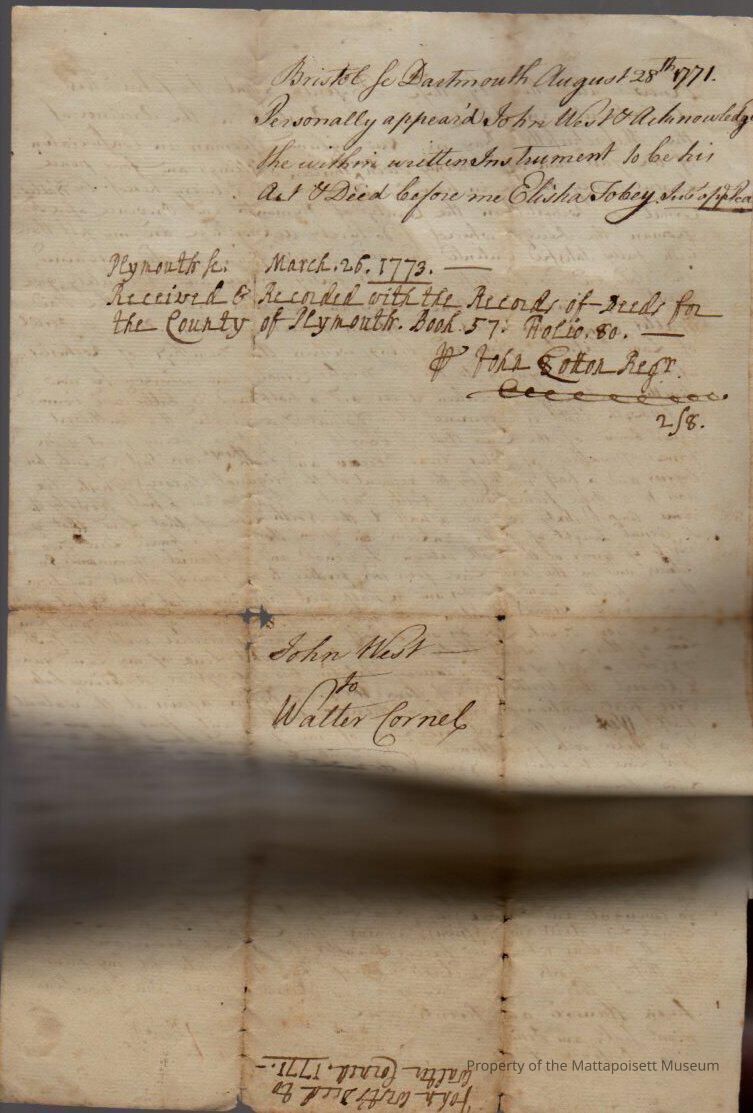 Bristol sc Dartmouth August 28th 1771.
Personally appear'd John West & Acknowledg
the within written Instrument to be his
Act & Deed before me Elisha Tobey Just of Pea
Plymouth sc. March. 26. 1773. —
Received & Recorded with the Records of Deeds for
the County of Plymouth. Book. 57: Folio. 80. —
John Cotton Regr.
2/8.
John West —
to
Walter Cornel
John West's Deed to
Walter Cornel. 1771.-
Property of the Mattapoisett Museum